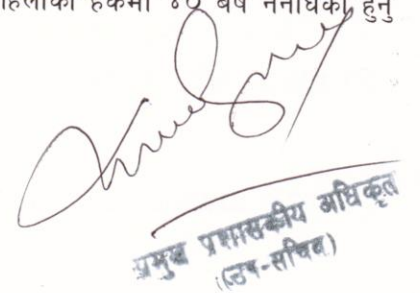 हिलाको हकमा ४० बर्ष ननाघेको हुनु
प्रमुख प्रशासकीय अधिकृत
(उप-सचिव)